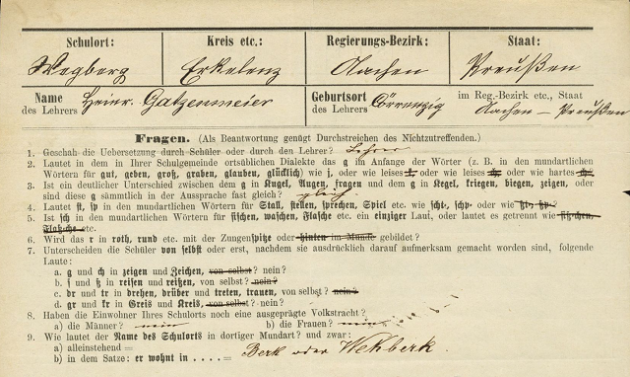 Schulort: Kreis etc.: Regierungs-Bezirk: Staat:
Wegberg Erkelenz Aachen Preußen
Name des Lehrers Heinr. Gatzenmeier Geburtsort des Lehrers Körrenzig im Reg.-Bezirk etc., Staat Aachen – Preußen
Fragen. (Als Beantwortung genügt Durchstreichen des Nichtzutreffenden.)
1. Geschah die Uebersetzung durch Schüler oder durch den Lehrer? Lehrer
2. Lautet in dem in Ihrer Schulgemeinde ortsüblichen Dialekte das g im Anfange der Wörter (z. B. in den mundartlichen
Wörtern für gut, geben, groß, graben, glauben, glücklich) wie j, oder wie leises oder wie leises oder wie hartes
3. Ist ein deutlicher Unterschied zwischen dem g in Kugel, Augen, fragen und dem g in Kegel, kriegen, biegen, zeigen, oder
sind diese g sämmtlich in der Aussprache fast gleich?
4. Lautet st, sp in den mundartlichen Wörtern für Stall, stellen, sprechen, Spiel etc. wie scht-, schp- oder wie
5. Ist sch in den mundartlichen Wörtern für fischen, waschen, Flasche etc. ein einziger Laut, oder lautet es getrennt wie etc.
6. Wird das r in roth, rund etc. mit der Zungenspitze oder hinten im Munde gebildet?
7. Unterscheiden die Schüler von selbst oder erst, nachdem sie ausdrücklich darauf aufmerksam gemacht worden sind, folgende
Laute:
a. g und ch in zeigen und Zeichen, von selbst? nein?
b. s und ß in reisen und reißen, von selbst? nein?
c. dr und tr in drehen, drüber und treten, trauen, von selbst? nein?
d. gr und kr in Greis und Kreis, von selbst? nein?
8. Haben die Einwohner Ihres Schulorts noch eine ausgeprägte Volkstracht?
a) die Männer? nein b) die Frauen? nein
9. Wie lautet der Name des Schulorts in dortiger Mundart? und zwar:
a) alleinstehend =
b) in dem Satze: er wohnt in . . . . = Berk oder Wekberk.